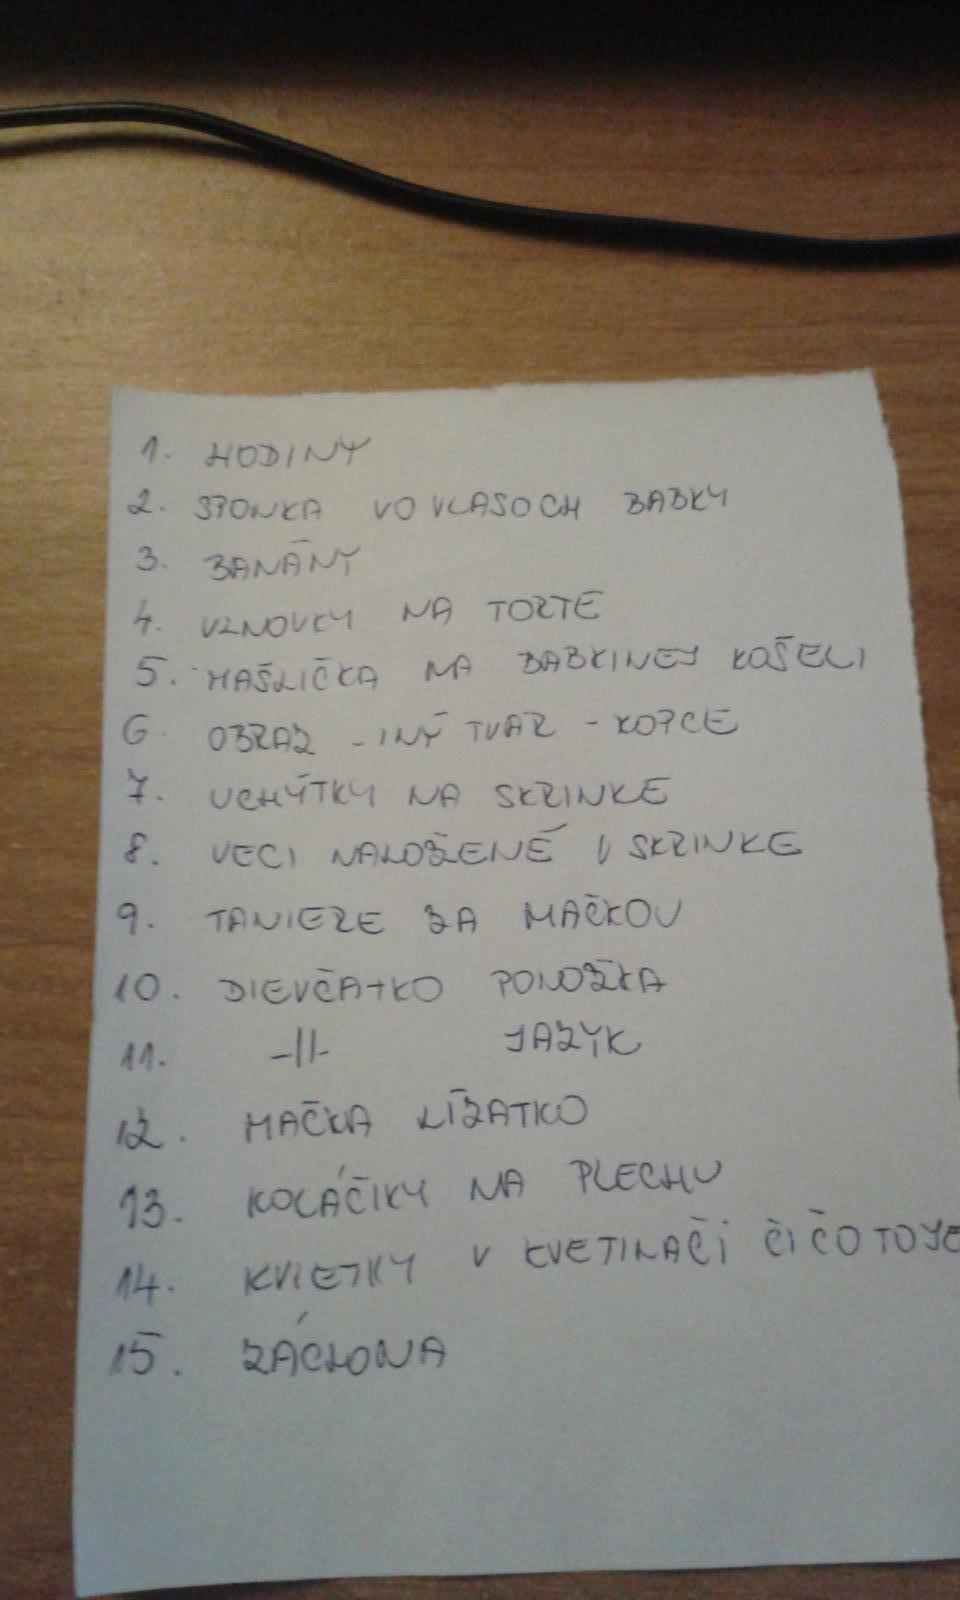 1. HODINY
2. SPONKA VO VLASOCH BABKY
3. BANÁNY
4. VLNOVKY NA TORTE
5. MAŠLIČKA NA BABKINEJ KOŠELI
6. OBRAZ - INÝ TVAR - KOPCE
7. UCHÝTKY NA SKRINKE
8. VECI NALOŽENÉ V SKRINKE
9. TANIERE ZA MAČKOU
10. DIEVČATKO PONOŽKA
11. -||- JAZYK
12. MAČKA LÍZATKO
13. KOLÁČIKY NA PLECHU
14. KVIETKY V KVETINAČI ČI ČO TO JE
15. ZÁCLONA